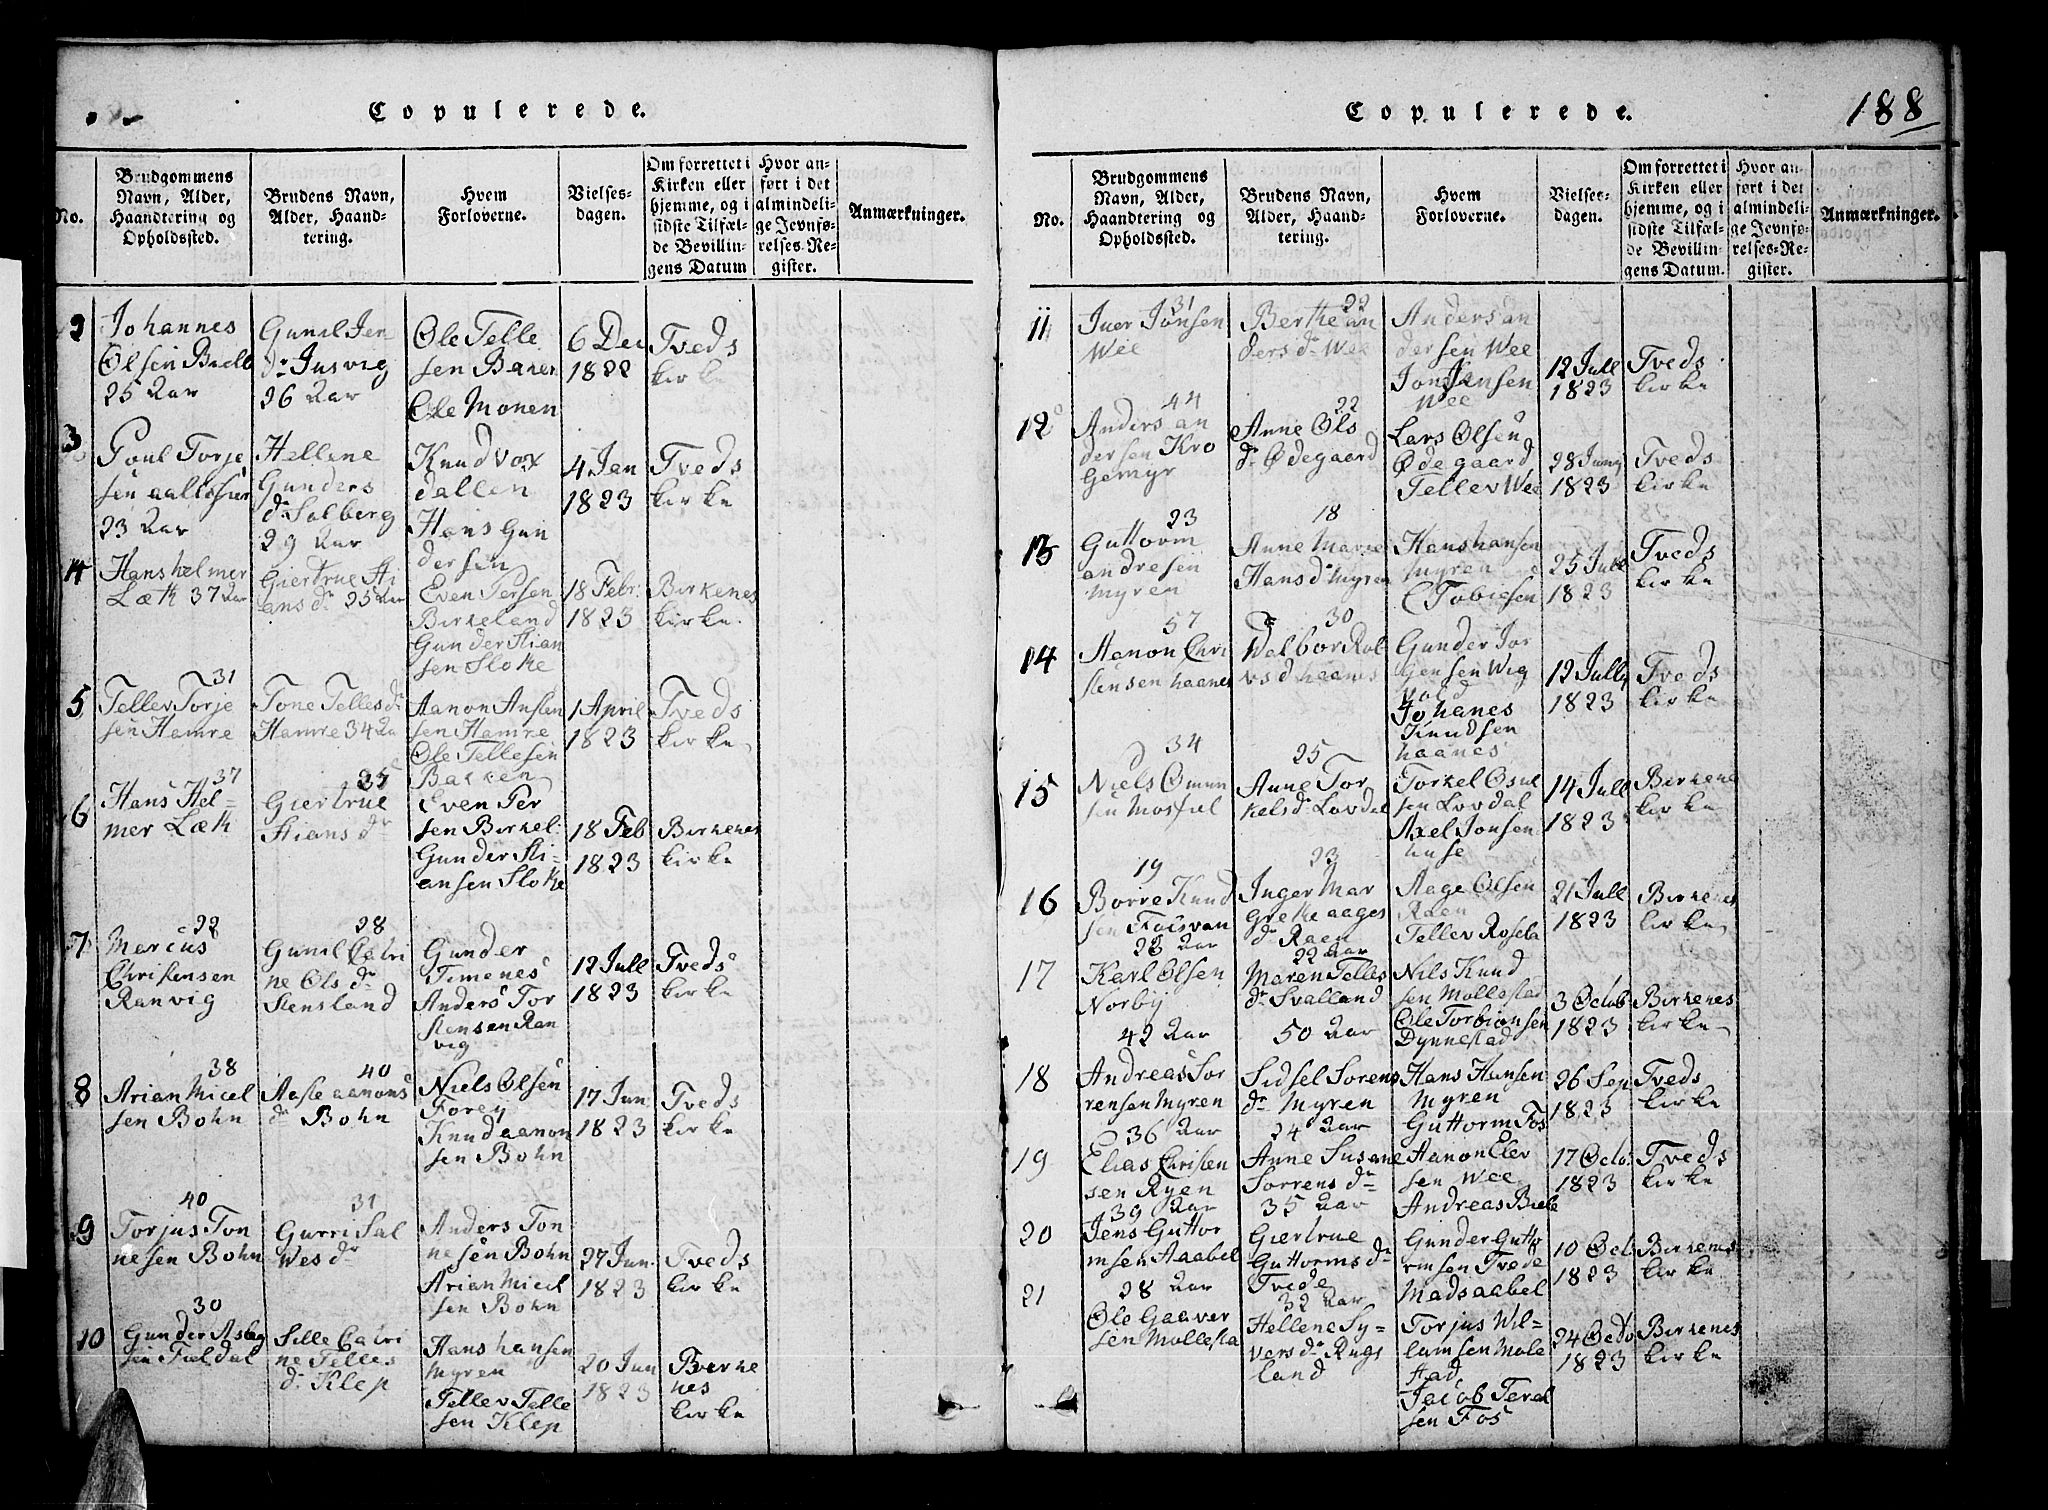 Copulerede.
No.
Brudgommens Navn, Alder, Haandtering og Opholdssted.
Brudens Navn, Alder, Haandtering.
Hvem Forloverne.
Vielsesdagen.
Om forrettet i Kirken eller hjemme, og i sidste Tilfælde Bevillingens Datum
Hvor anført i det almindelige Jevnførelses-Register.
Anmærkninger.
2
Johannes
Olsen Bielb
25 Aar
Gunil Jen
dr Jusvig
26 Aar
Ole Telle
sen Baken
Ole Monen
6 Dec
1822
Tveds
kirke
3
Poul Torje
sen
23 Aar
Hellene
Gunders
dr Solberg
29 Aar
Knud vox
dallen
Hans Gun
dersen
4 Jan
1823
Tveds
kirke
4
Hans helmer
Læk 37 Aar
Giertrue Sti
ans dr 25 Aar
Even Persen
Birkeland
Gunder Stian
sen Sloke
18 Febr.
1823
Birkenes
kirke.
5
31
Tellev Torje
sen Hamre
Tone Telles dr
Hamre 34 Aa
Aanon Ansten
sen Hamre
Ole Tellesen
Bakken
1 April
1823
Tveds
kirke
6
37
Hans Hel=
mer Læk
25
Giertrue
Stians dr
Even Per
sen Birkel:
Gunder Sti-
ansen Sloke
18 Feb
1823
Birkenes
kirke
7
22
Marcus
Christensen
Ranvig
28
Gunil Catri
ne Ols dr
Stensland
Gunder
Timenes
Anders Tor
stensen Ran
vig
12 Jull
1823
Tveds
kirke
8
38
Arian Micel
sen Bohn
40
Aasle aanons
dr Bohn
Niels Olsen
Forey
Knud aanon
sen Bohn
17 Jun
1823
Tveds
kirke
9
40
Torjus Ton
nesen Bohn
31
Gurri Sal
wes dr
Anders Ton
nesen Bohn
Arian Micel
sen Bohn
27 Jun.
1823
Tveds
kirke
10
30
Gunder Asleg
sen Fieldal
Sille Catri
ne Telles
dr Klep
Hans hansen
myren
Tellev Telle
sen Klep
20 Jun
1823
Birke
nes
kirke
Copulerede.
188
No.
Brudgommens Navn, Alder, Haandtering og Opholdssted.
Brudens Navn, Alder, Haandtering.
Hvem Forloverne.
Vielsesdagen.
Om forrettet i Kirken eller hjemme, og i sidste Tilfælde Bevillingens Datum.
Hvor anført i det almindelige Jevnførelses-Register.
Anmærkninger.
11
31
Iver Jonsen
Wee
22
Berthe an
ders dr Wee
Anders an
dersen Wee
Jon Jensen
Wee
12 Jull
1823
Tveds
kirke
12
44
Anders an
dersen Kro
gemyr
22
Anne Ols
dr Ødegaard
Lars Olsen
Ødegaard
Tellev Wee
28 Juny
1823
Tveds
kirke
13
23
Guttorm
andresen
myren
18
Anne Marie
Hans dr myren
Hans hansen
myren
C Tobiesen
25 Jull
1823
Tveds
kirke
14
57
Aanon Chri
stensen haanes
30
Walbor Rol
vsd haanes
Gunder Jor
gensen Wig
vold
Johanes
Knudsen
haanes
12 Jully
1823
Tveds
kirke
15
34
Niels Omun
sen Mosfiel
25
Anne Tor
kels dr Lovdal
Torkel Osul
sen Lovdal
Axel Jonsen
huse
14 Jull
1823
Birkene
kirke
16
19
Borre Knud
sen Foisvan
23
Inger Mar
grethe aages
dr Raen
Aage Olsen
Raen
Tellev Rosela
21 Jull
1823
Birkenes
kirke
17
28 Aar
Karl Olsen
Norby
22 Aar
Maren Telles
dr Svalland
Nils Knud
sen Mollestad
Ole Torbionsen
Dynnestad
3 Octob
1823
Birkenes
kirke
18
42 Aar
Andreas Sor
rensen Myren
50 Aar
Sidsel Sorens
dr Myren
Hans Hansen
Myren
Guttorm Fos
26 Sep
1823
Tveds
kirke
19
36 Aar
Elias Christen
sen Ryen
24 Aar
Anne Susane
Sorrens dr
Aanon Elev
sen Wee
Andreas Biele
17 Octo.
1823
Tveds
kirke
20
39 Aar
Jens Guttor
msen Aaabel
35 Aar
Giertrue
Guttorms dr
Tvede
Gunder Gutto
rmsen Tvede
Mads aabel
10 Oct
1823
Birkenes
kirke
21
28 Aar
Ole Gaaver
sen Mollesta
32 Aar
Hellene Sy=
vers dr Rugs
land
Torjus Wil=
lumsen Mole
stad
Jacob Teral
sen Fos
24 Octo
1823
Birkenes
kirke